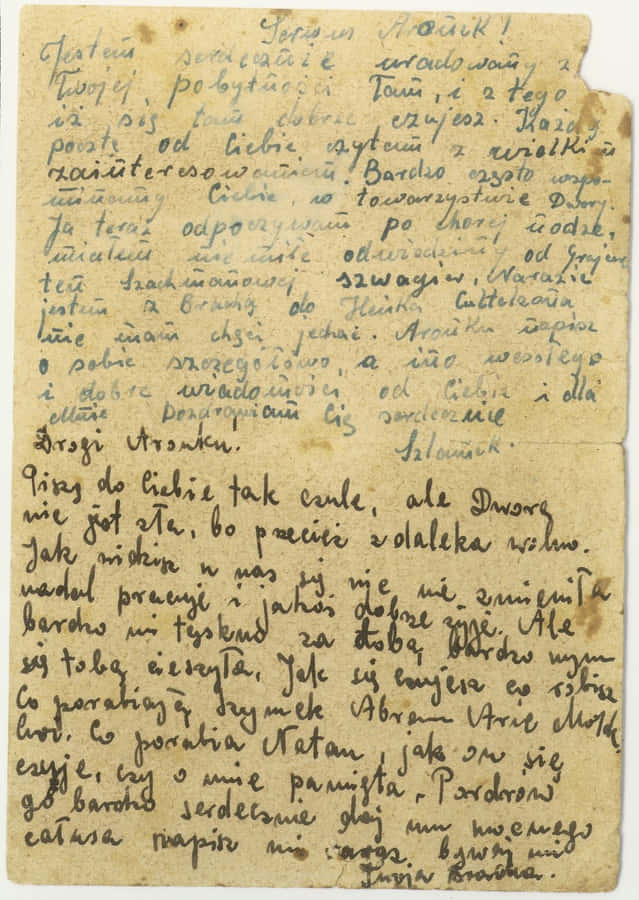 Serwus Aronik!
Jestem serdecznie uradowany z
Twojej pobytności Tam, i z tego
iż się tam dobrze czujesz. Każdą
pocztę od Ciebie czytam z wielkim
zainteresowaniem. Bardzo często wspo-
minamy Ciebie w towarzystwie Dwory.
Ja teraz odpoczywam po chorej nodze,
miałem nie miłe odwiedziny od
ten Szachmanowej szwagier. Narazie
jestem z Brachą do Heńka
nie mam chęci jechać. Arońku napisz
o sobie szczegółowo, a ino wesołego
i dobre wiadomości od Ciebie i dla
Mnie Pozdrawiam Cię serdecznie
Szlamek.
Drogi Aronku.
Piszę do Ciebie tak czule, ale Dwora
nie jest zła, bo przecież zdaleka wolno.
Jak widzisz u nas się nic nie zmieniła
nadal pracuję i jakoś dobrze żyję. Ale
bardzo mi tęskno za tobą, bardzo bym
się tobą cieszyła. Jak się czujesz co robisz
Co porabiają Szymek Abram Arie
Co porabia Natan, jak on się
czyje, czy o mnie pamięta. Pozdrów
go bardzo serdecznie daj mu mocnego
całusa napisz mi zaraz bywaj mi
Twoja Bracha.